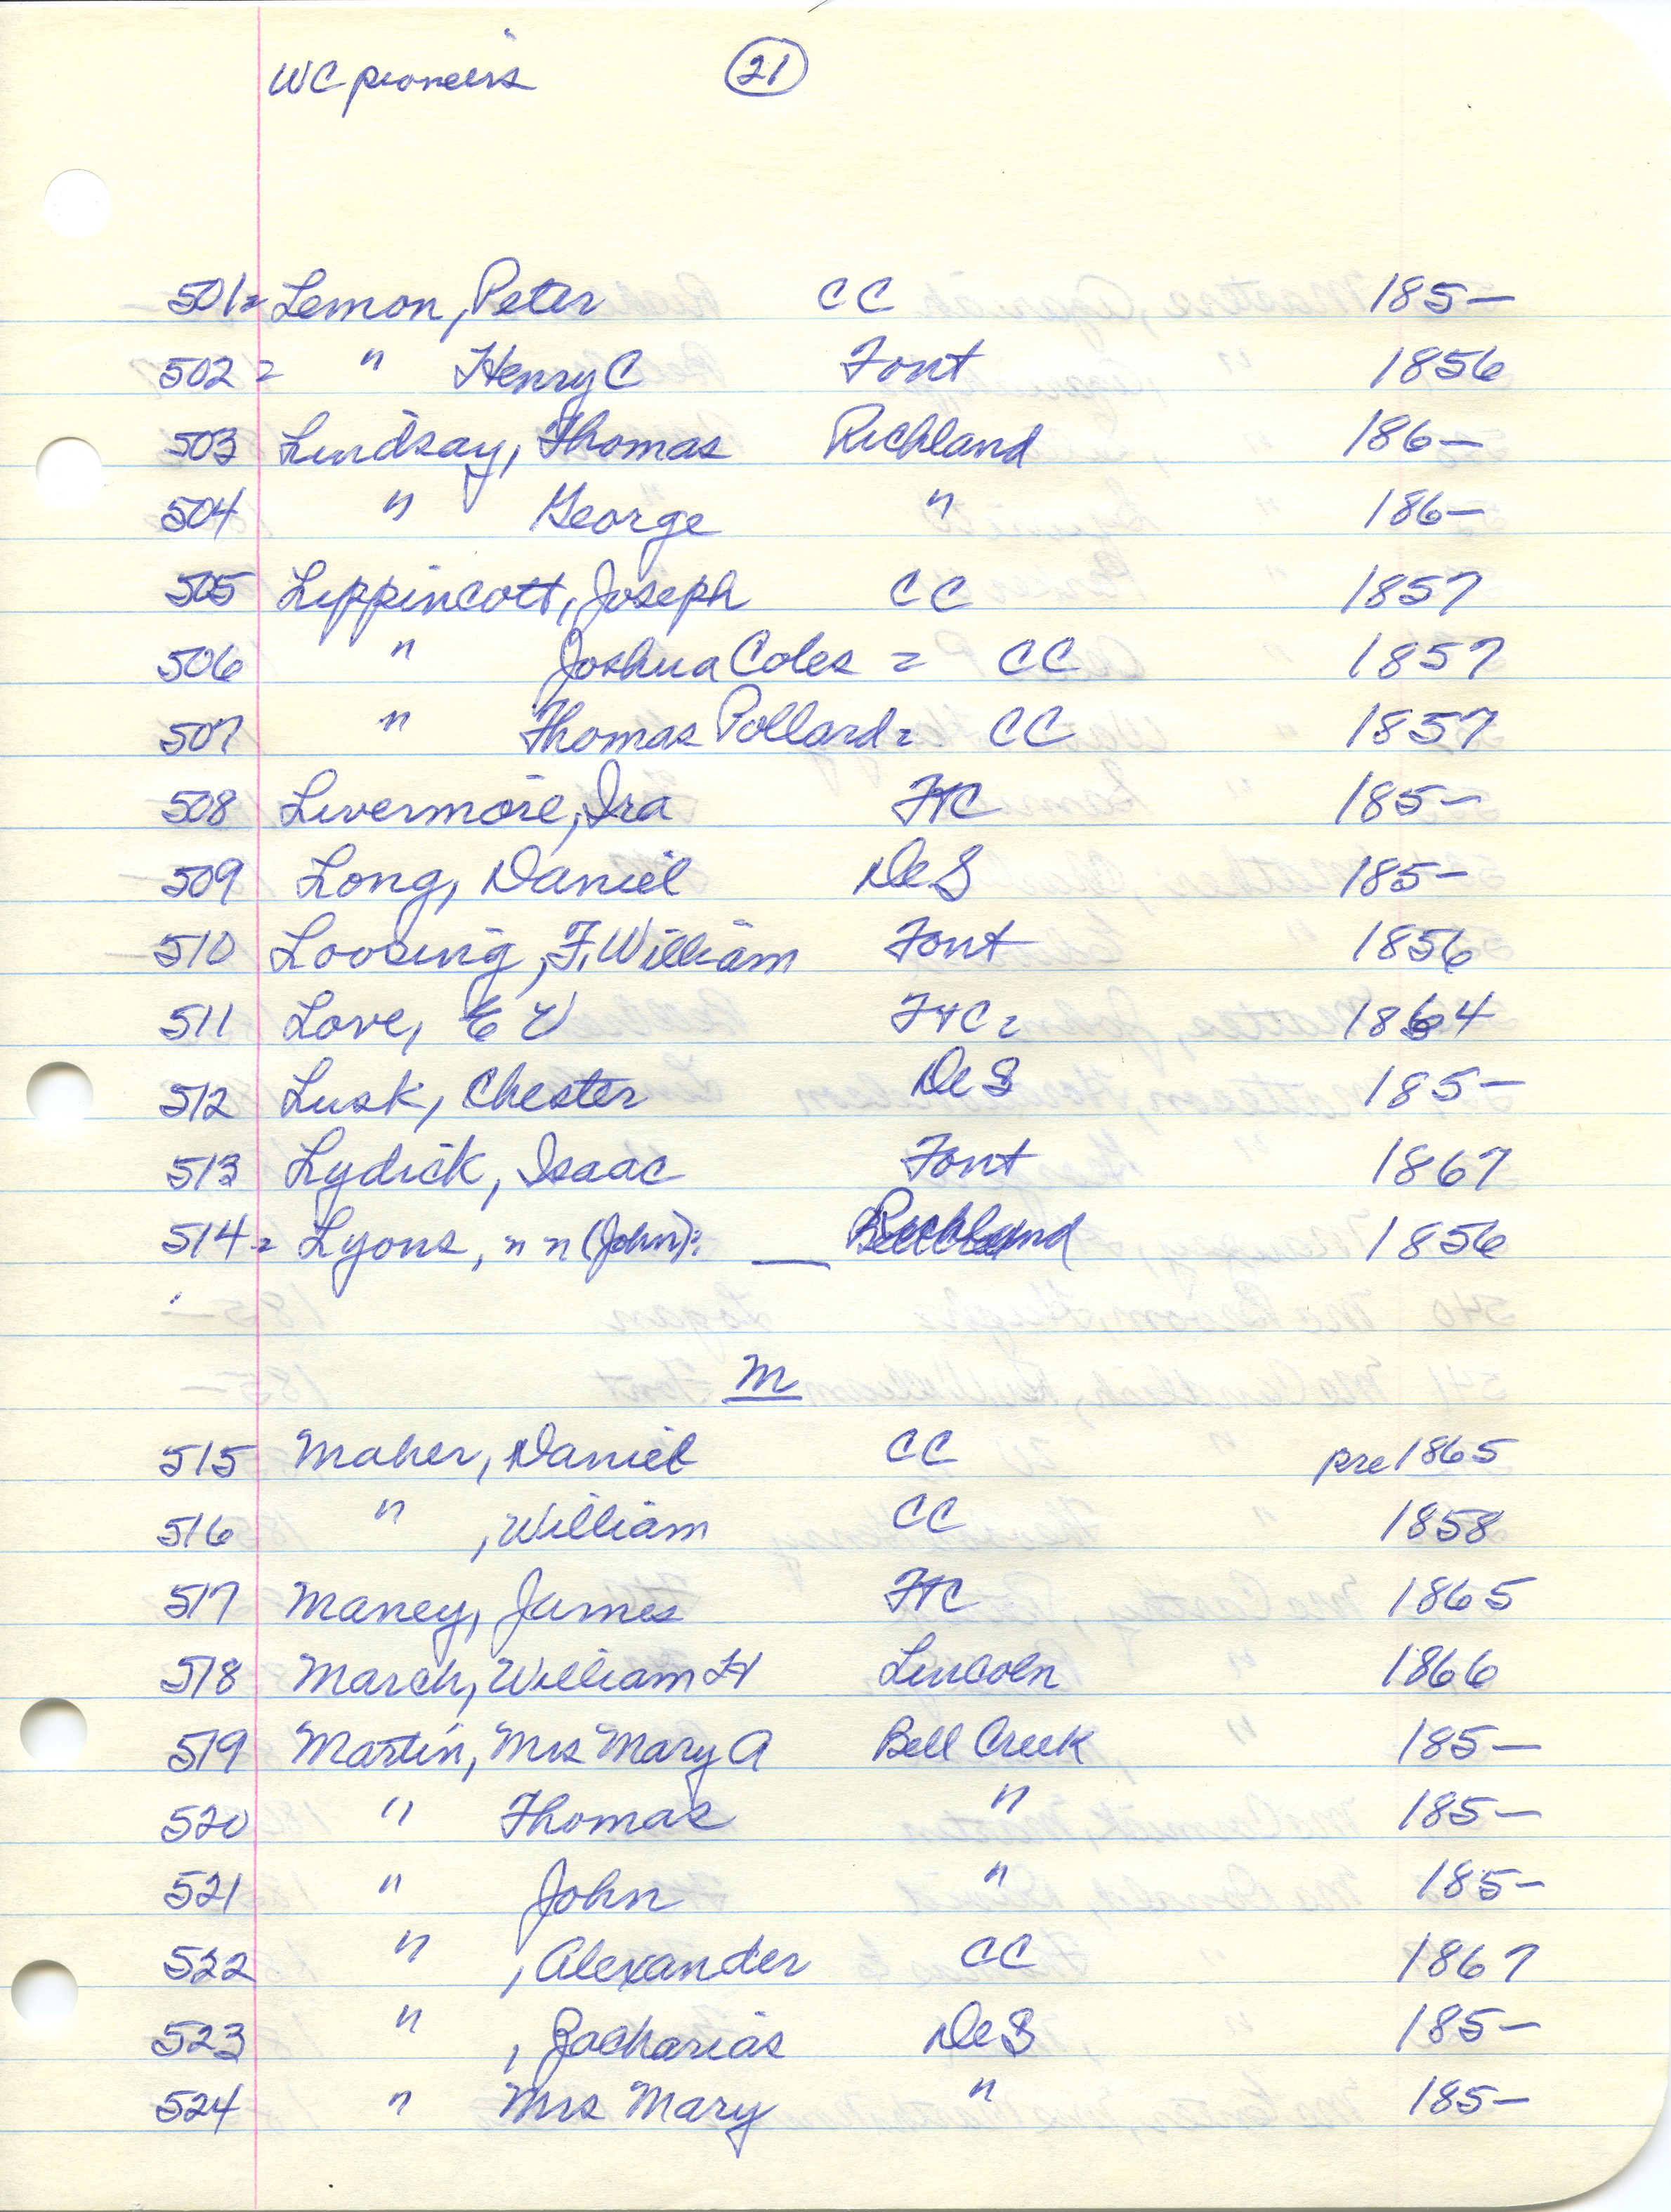 WC pioneers 21
501= Lemon, Peter CC 185—
502= " Henry C Font 1856
503 Lindsay, Thomas Richland 186—
504 " George " 186—
505 Lippincott, Joseph CC 1857
506 " Joshua Coles = CC 1857
507 " Thomas Pollard = CC 1857
508 Livermore, Ira FtC 185—
509 Long, Daniel DeS 185—
510 Loosing, F. William Font 1856
511 Love, E V FtC = 1864
512 Lusk, Chester DeS 185—
513 Lydick, Isaac Font 1867
514= Lyons, " " (John): — Richland 1856
M
515 Maher, Daniel CC pre 1865
516 " , William CC 1858
517 Maney, James FtC 1865
518 March, William H Lincoln 1866
519 Martin, Mrs Mary A Bell Creek 185—
520 " Thomas " 185—
521 " John " 185—
522 " , Alexander CC 1867
523 " , Zacharias DeS 185—
524 " Mrs Mary " 185—